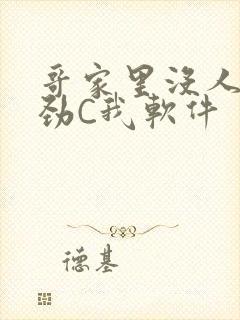 哥家里没人
劲C我软件
德基